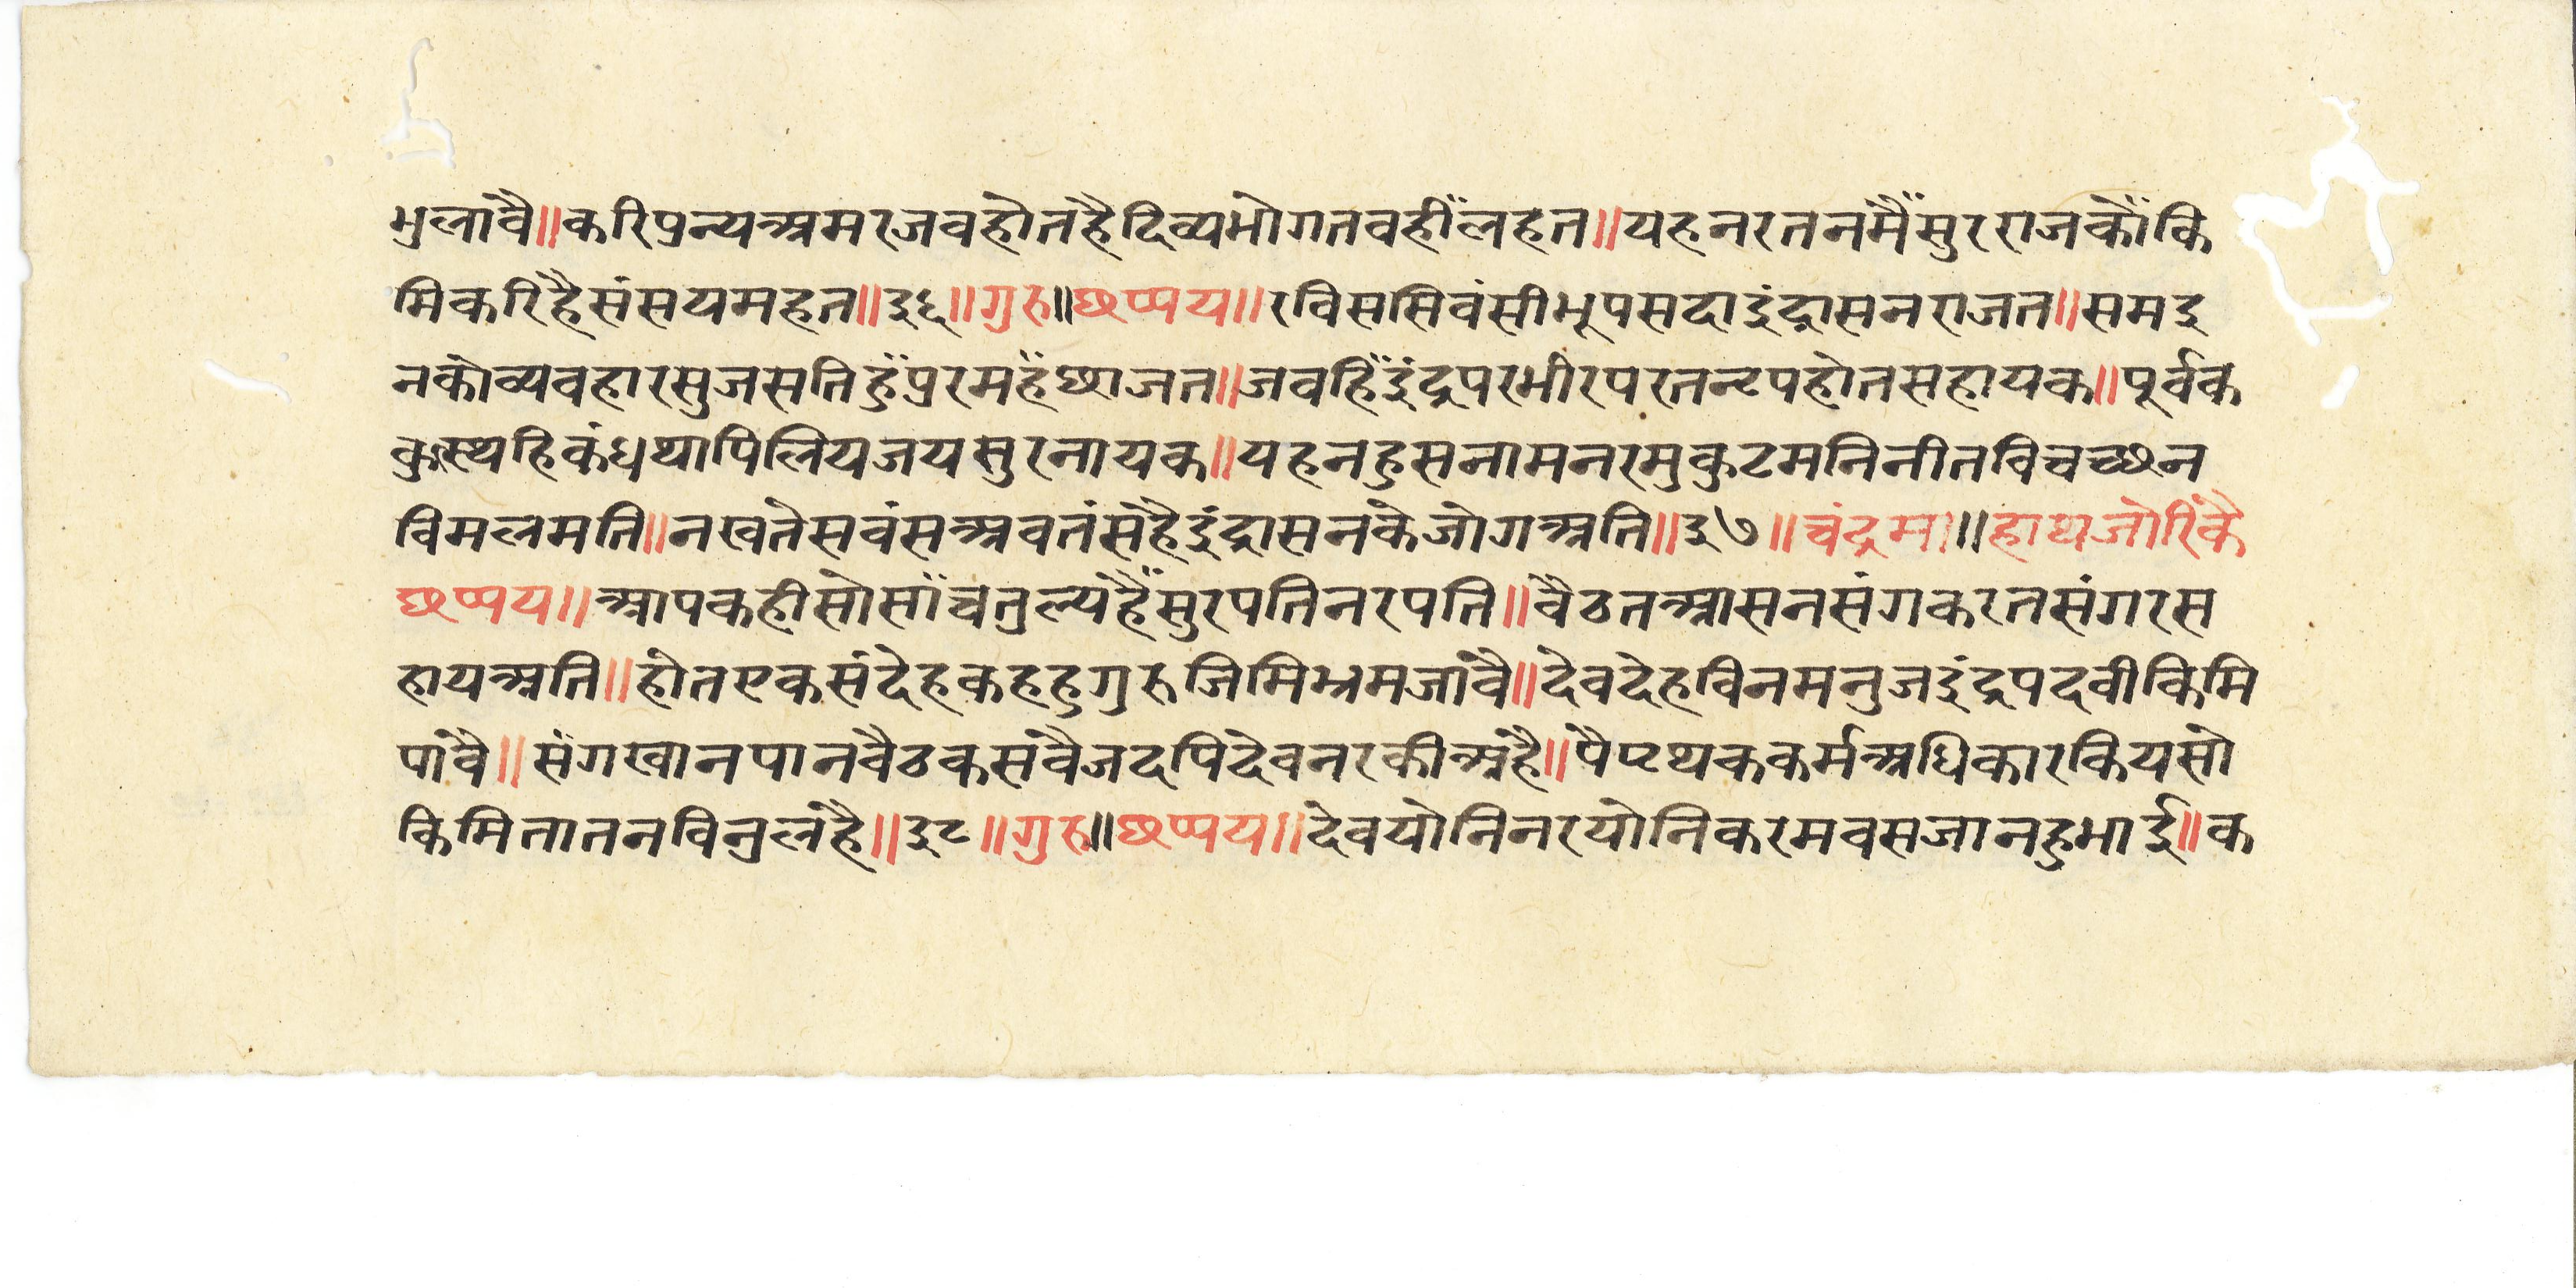 भुलावै॥करिपुन्यअमरजवहोतहैदिव्यभोगतवहीँलहत॥यहनरतनमैँसुरराजकौँकि
मिकरिहैसंसयमहत॥३६॥गुरु॥छप्पय॥रविससिवंसीभूपसदाइंद्रासनराजत॥समइ
नकोव्यवहारसुजसतिहुँपुरमहँछाजत॥जवहिँइंद्रपरभीरपरतनृपहोतसहायक॥पूर्वक
कुस्थहिकंधथापिलियजयसुरनायक॥यहनहुसनामनरमुकुटमनिनीतविचच्छन
विमलमति॥नखतेसवंसअवतंसहैइंद्रासनकेजोगअति॥३७॥चंद्रमा॥हाथजोरिकै
छप्पय॥आपकहीसोसाँचतुल्यहैँसुरपतिनरपति॥वैठतआसनसंगकरतसंगरस
हायअति॥होतएकसंदेहकहहुगुरुजिमिभ्रमजावै॥देवदेहविनमनुजइंद्रपदवीकिमि
पावै॥संगखानपानवैठकसवैजदपिदेवनरकीअहै॥पैपृथककर्मअधिकारकियसो
किमितातनविनुलहै॥३८॥गुरु॥छप्पय॥देवयोनिनरयोनिकरमवसजानहुभाई॥क